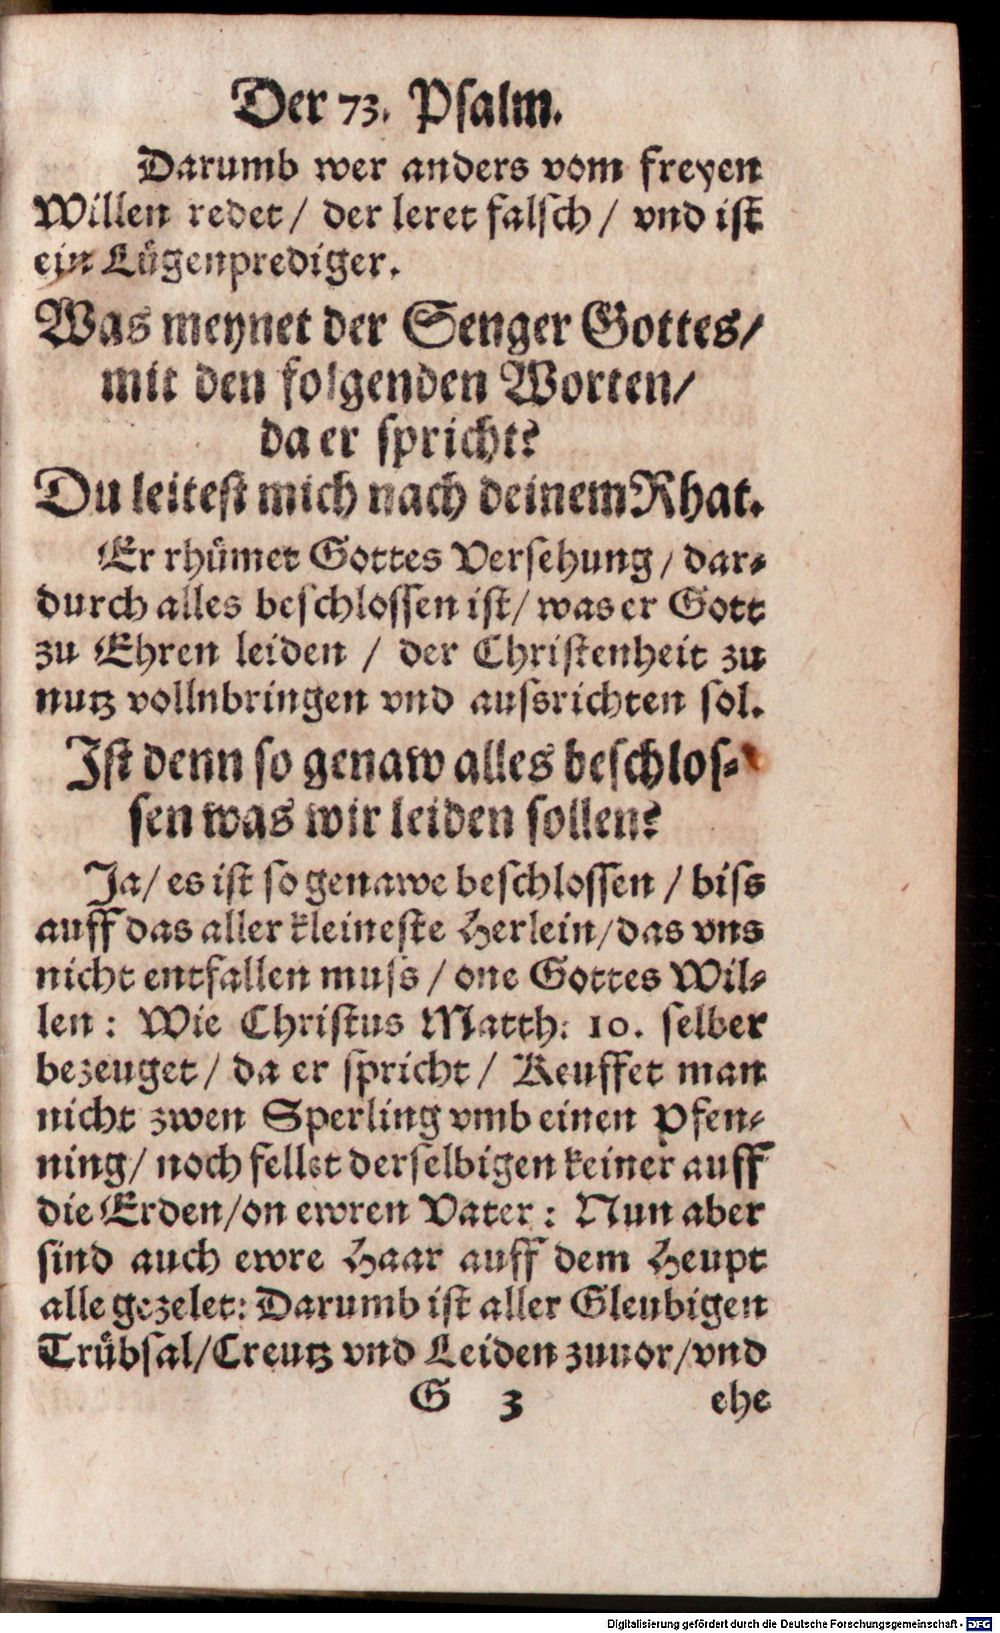 Der 73. Psalm.
Darumb wer anders vom freyen
Willen redet / der leret falsch / vnd ist
ein Lügenprediger.
Was meynet der Senger Gottes /
mit den folgenden Worten /
da er spricht?
Du leitest mich nach deinem Rhat.
Er rhümet Gottes Versehung / dar⸗
durch alles beschlossen ist / was er Gott
zu Ehren leiden / der Christenheit zu
nutz vollnbringen vnd aussrichten sol.
Ist denn so genaw alles beschlos⸗
sen was wir leiden sollen?
Ja / es ist so genawe beschlossen / biss
auff das aller kleineste Herlein / das vns
nicht entfallen muss / one Gottes Wil⸗
len : Wie Christus Matth: 10. selber
bezeuget / da er spricht / Keuffet man
nicht zwen Sperling vmb einen Pfen⸗
ning / noch fellet derselbigen keiner auff
die Erden / on ewren Vater : Nun aber
sind auch ewre Haar auff dem Heupt
alle gezelet: Darumb ist aller Gleubigen
Trübsal / Creutz vnd Leiden zuuor / vnd
G 3 ehe
Digitalisierung gefördert durch die Deutsche Forschungsgemeinschaft - DFG